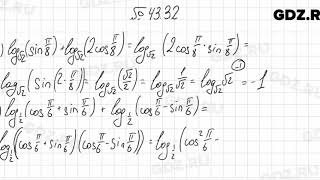 № 43.32
GDZ.RU
) log_√2 (sin π/8) + log_√2 (2cos π/8) = log_√2 (2cos π/8 · sin π/8) =
log_√2 (sin (2 · π/8)) = log_√2 (√2/2) = log_√2 1/√2 = log_√2 √2^(-1) = -1
) log_1/2 (cos π/6 + sin π/6) + log_1/2 (cos π/6 - sin π/6) =
log_1/2 ((cos π/6 + sin π/6)(cos π/6 - sin π/6)) = log_1/2 (cos² π/6 -